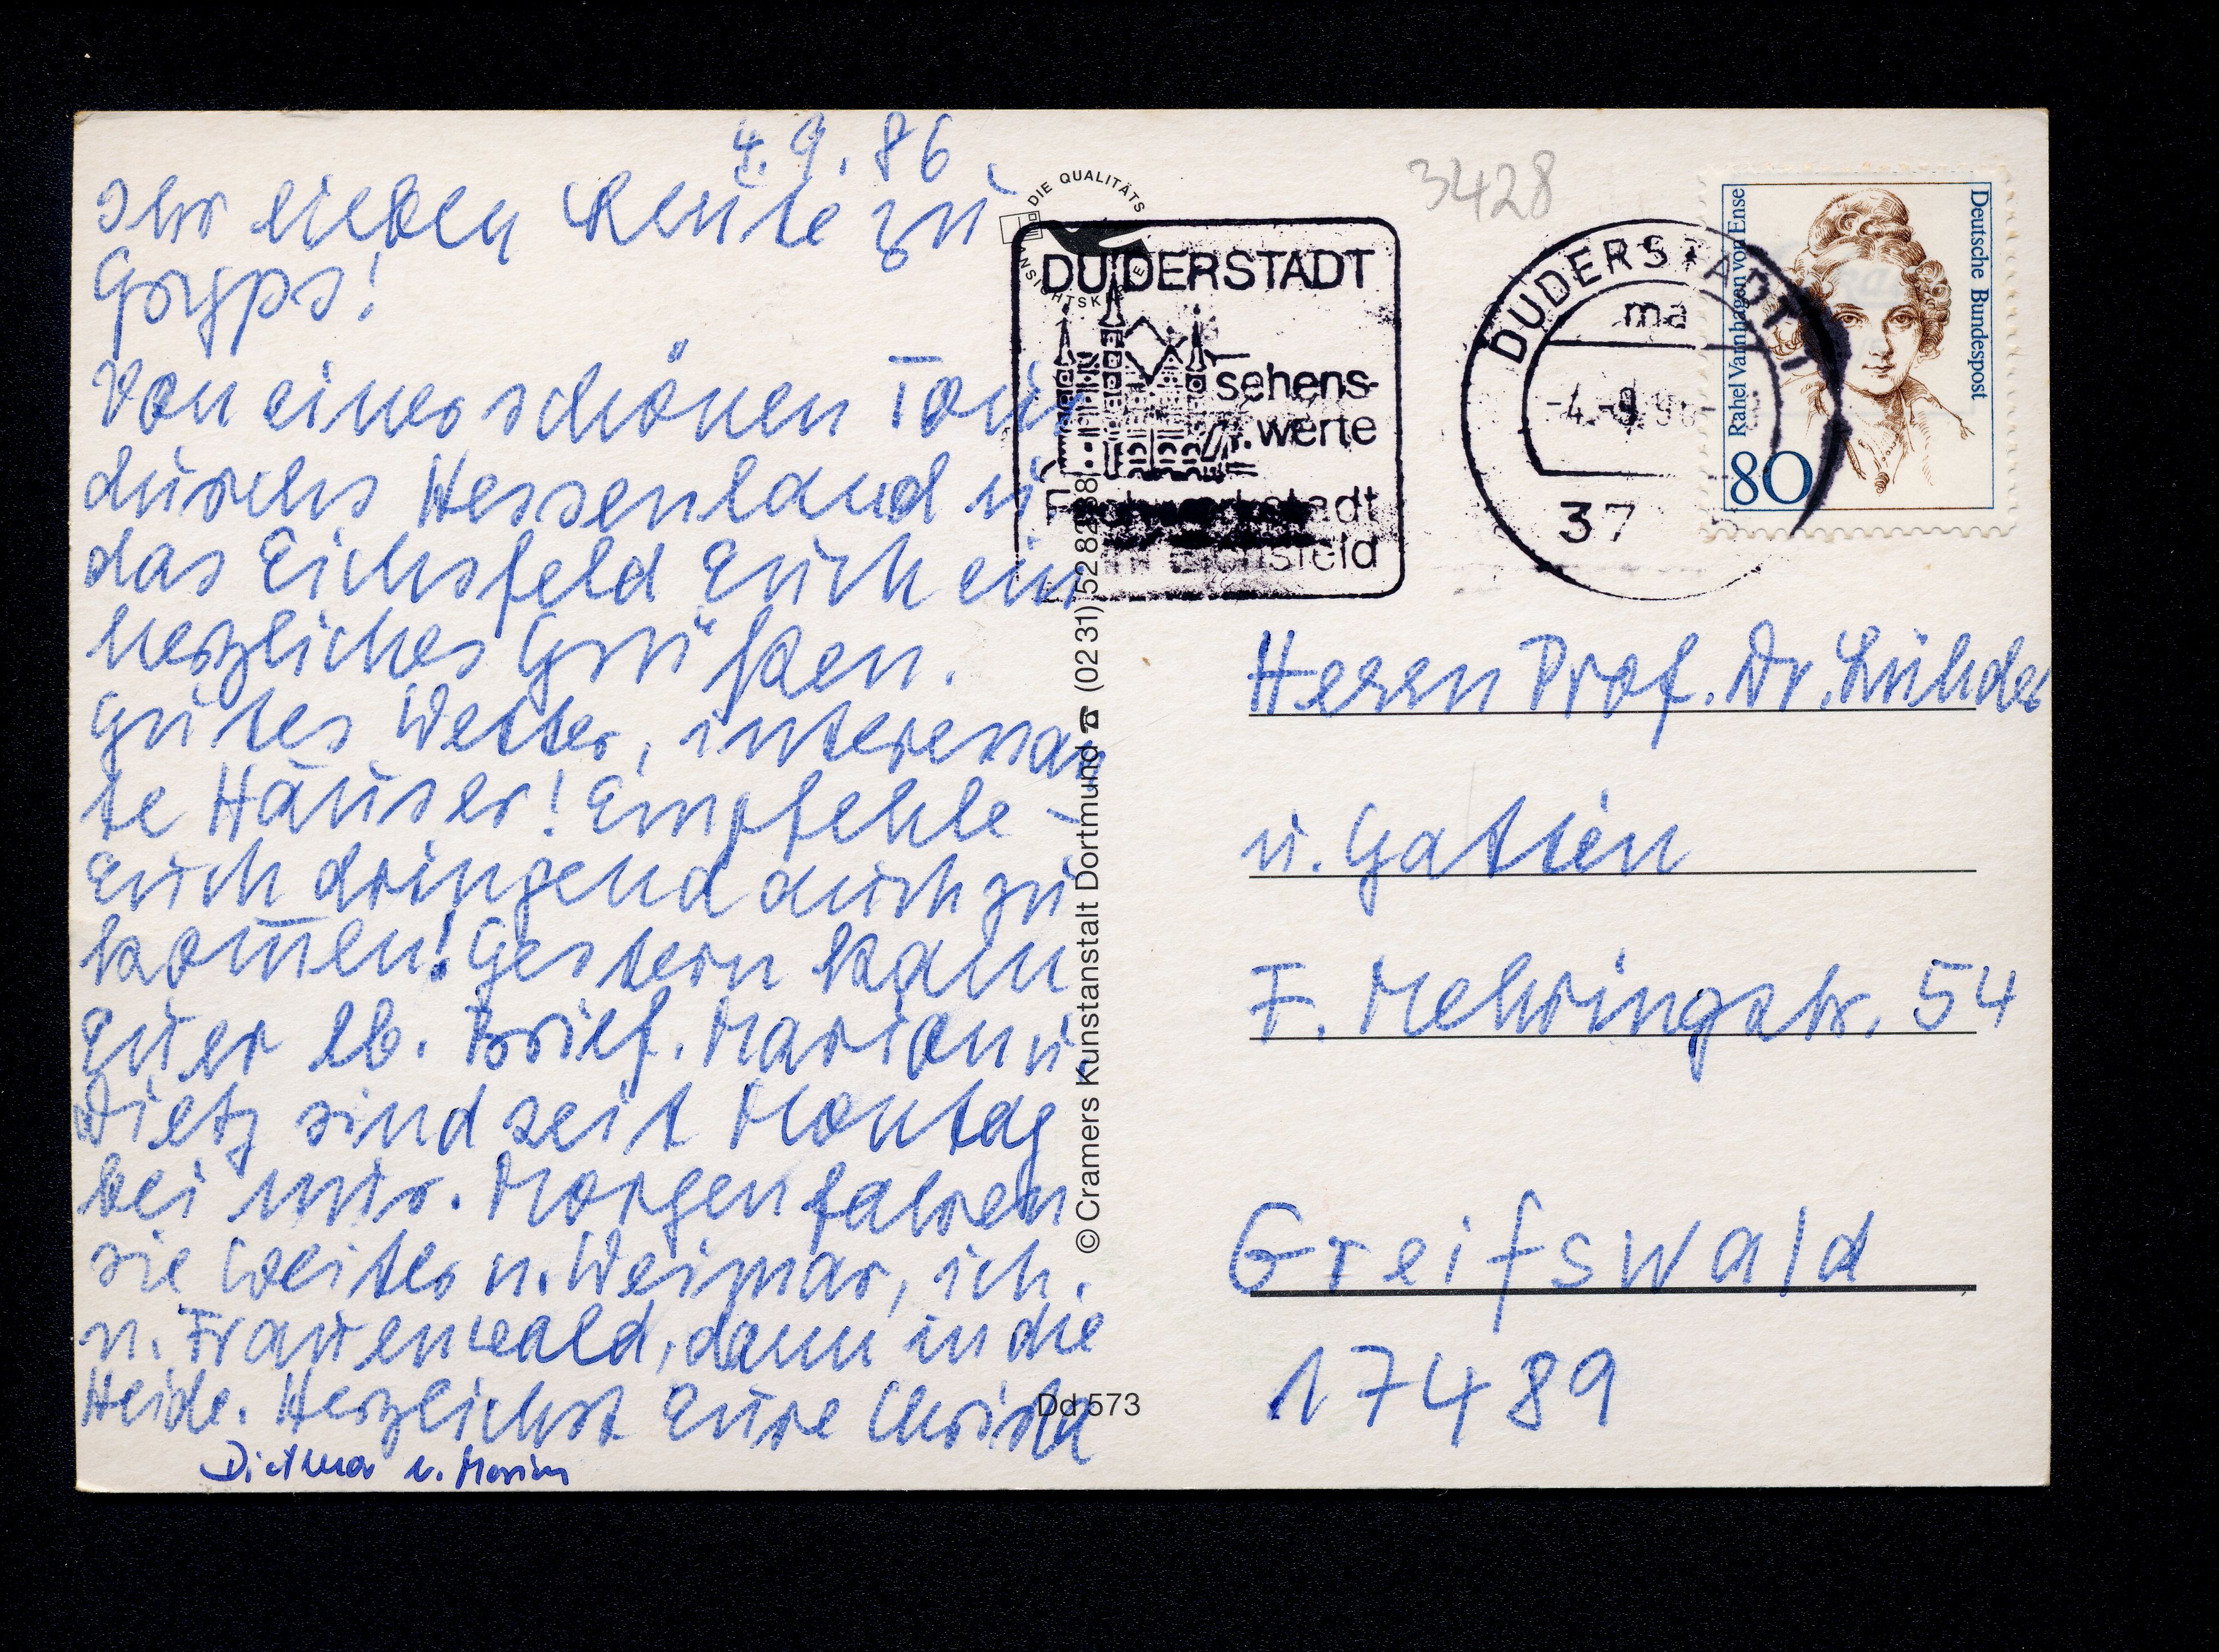 4.9.86.
Ihr lieben Leute zu
Gryps!
Von einer schönen Tour
durchs Hessenland u.
das Eichsfeld Euch ein
herzliches Grüßen.
Gutes Wetter, interessan
te Häuser! Empfehle -
Euch dringend auch zu
kom̅en! Gestern kam
Euer lb. Brief. Marion u.
Dietz sind seit Montag
bei mir. Morgen fahren
sie weiter n. Weimar, ich.
n. Frauenwald, dann in die
Heide. Herzlichst Eure Christa
Dietmar u. Marion
DIE QUALITÄTS
ANSICHTSKARTE
© Cramers Kunstanstalt Dortmund ☎ (02 31) 52 82 38
Dd 573
3428
DUDERSTADT
sehens-
werte
Fachwerkstadt
im Eichsfeld
DUDERSTADT
ma
-4.-9.96-
37
Deutsche Bundespost
Rahel Varnhagen von Ense
80
Herrn Prof. Dr. Lühder
u. Gattin
F. Mehringstr. 54
Greifswald
17489